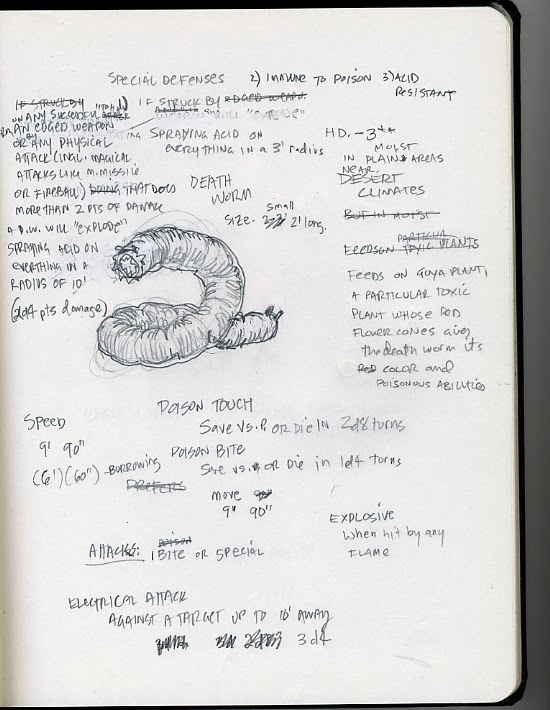 SPECIAL DEFENSES 2) IMMUNE TO POISON 3) ACID
RESISTANT
IF STRUCK BY
ON ANY SUCCESSFUL "TO HIT"
AN EDGED WEAPON
OR BY ANY PHYSICAL
ATTACK (INCL. MAGICAL
ATTACKS LIKE M. MISSILE
OR FIREBALL) DOING THAT DOES
MORE THAN 2 PTS OF DAMAGE
A D.W. WILL "EXPLODE"
SPRAYING ACID ON
EVERYTHING IN A
RADIUS OF 10'
(2d4 pts damage)
1) IF STRUCK BY EDGED WEAP.
WILL "EXPLODE"
SPRAYING ACID ON
EVERYTHING IN A 3' radius
DEATH
WORM
Small
Size. 2' long.
HD. - 3**
MOIST
IN PLAINS AREAS
NEAR
DESERT
CLIMATES
BUT IN MOIST
PARTICULAR
FEEDS ON TOXIC PLANTS
FEEDS ON GOYA PLANT,
A PARTICULAR TOXIC
PLANT WHOSE RED
FLOWER CONES gives
the death worm its
RED COLOR and
POISONOUS ABILITIES
POISON TOUCH
Save vs. P OR DIE IN 2d8 turns
Speed
9' 90"
(6') (60") - BURROWING
POISON BITE
Save vs. P OR Die in 1d4 turns
PREFERS
move
9" 90"
EXPLOSIVE
When hit by any
FLAME
POISON
ATTACKS: 1 BITE OR SPECIAL
ELECTRICAL ATTACK
AGAINST A TARGET UP TO 10' AWAY
3d4